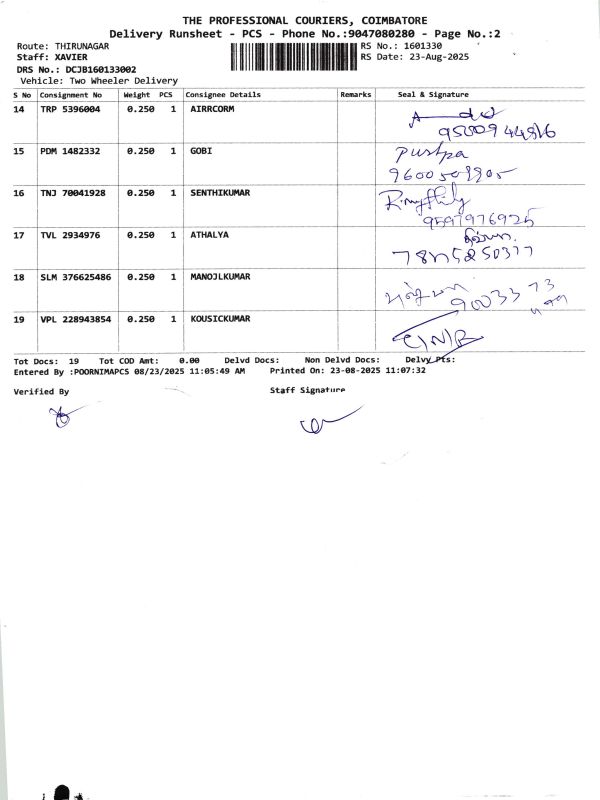 THE PROFESSIONAL COURIERS, COIMBATORE
Delivery Runsheet - PCS - Phone No.:9047080280 - Page No.:2
Route: THIRUNAGAR RS No.: 1601330
Staff: XAVIER RS Date: 23-Aug-2025
DRS No.: DCJB160133002
Vehicle: Two Wheeler Delivery
S No Consignment No Weight PCS Consignee Details Remarks Seal & Signature
14 TRP 5396004 0.250 1 AIRRCORM
15 PDM 1482332 0.250 1 GOBI Pushpa
16 TNJ 70041928 0.250 1 SENTHIKUMAR
9597976925
17 TVL 2934976 0.250 1 ATHALYA
18 SLM 376625486 0.250 1 MANOJLKUMAR
90033 73
19 VPL 228943854 0.250 1 KOUSICKUMAR
Tot Docs: 19 Tot COD Amt: 0.00 Delvd Docs: Non Delvd Docs: Delvy Pts:
Entered By :POORNIMAPCS 08/23/2025 11:05:49 AM Printed On: 23-08-2025 11:07:32
Verified By Staff Signature